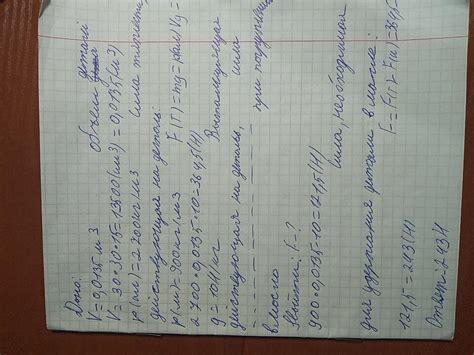 Дано: Объем детали
V = 0,0135 м3
V = 30·30·15 = 13500 (см3) = 0,0135 (м3)
ρ(ал) = 2700 кг/м3 Сила тяжести,
действующая на деталь:
ρ(м) = 900 кг/м3 F(т) = mg = ρал Vg =
2700·0,0135·10 = 364,5 (Н)
g = 10 Н/кг Выталкивающая
сила
действующая на деталь,
при погружении
в масло
Найти: F-?
900·0,0135·10 = 121,5 (Н)
Сила, необходимая
для удержания детали в масле:
F = F(т) - F(а) = 364,5 -
121,5 = 243 (Н)
Ответ - 243 Н